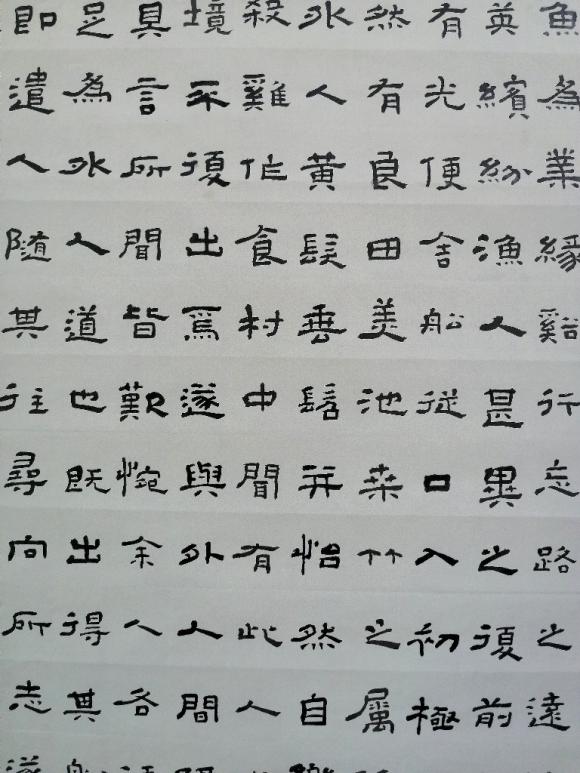 魚為業緣谿行忘路之遠
英繽紛漁人甚異之復前
有光便舍船從口入初極
然有良田美池桑竹之屬
外人黃髮垂髫并怡然自
殺雞作食村中聞有此人
境不復出焉遂與外人間
具言所聞皆歎惋余人各
足為外人道也既出得其
即遣人随其往尋向所志